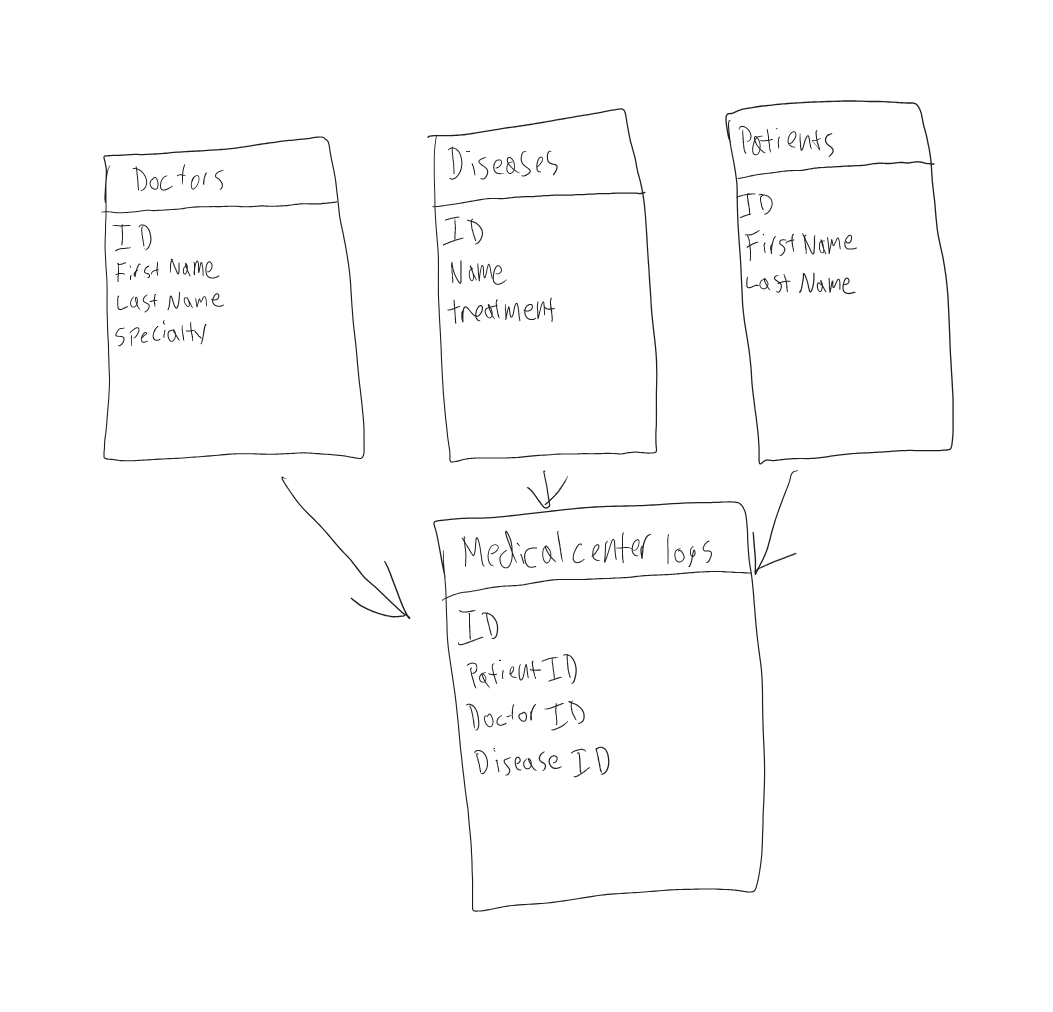 Doctors
ID
First Name
Last Name
Specialty
Diseases
ID
Name
treatment
Patients
ID
First Name
Last Name
Medical center logs
ID
Patient ID
Doctor ID
Disease ID